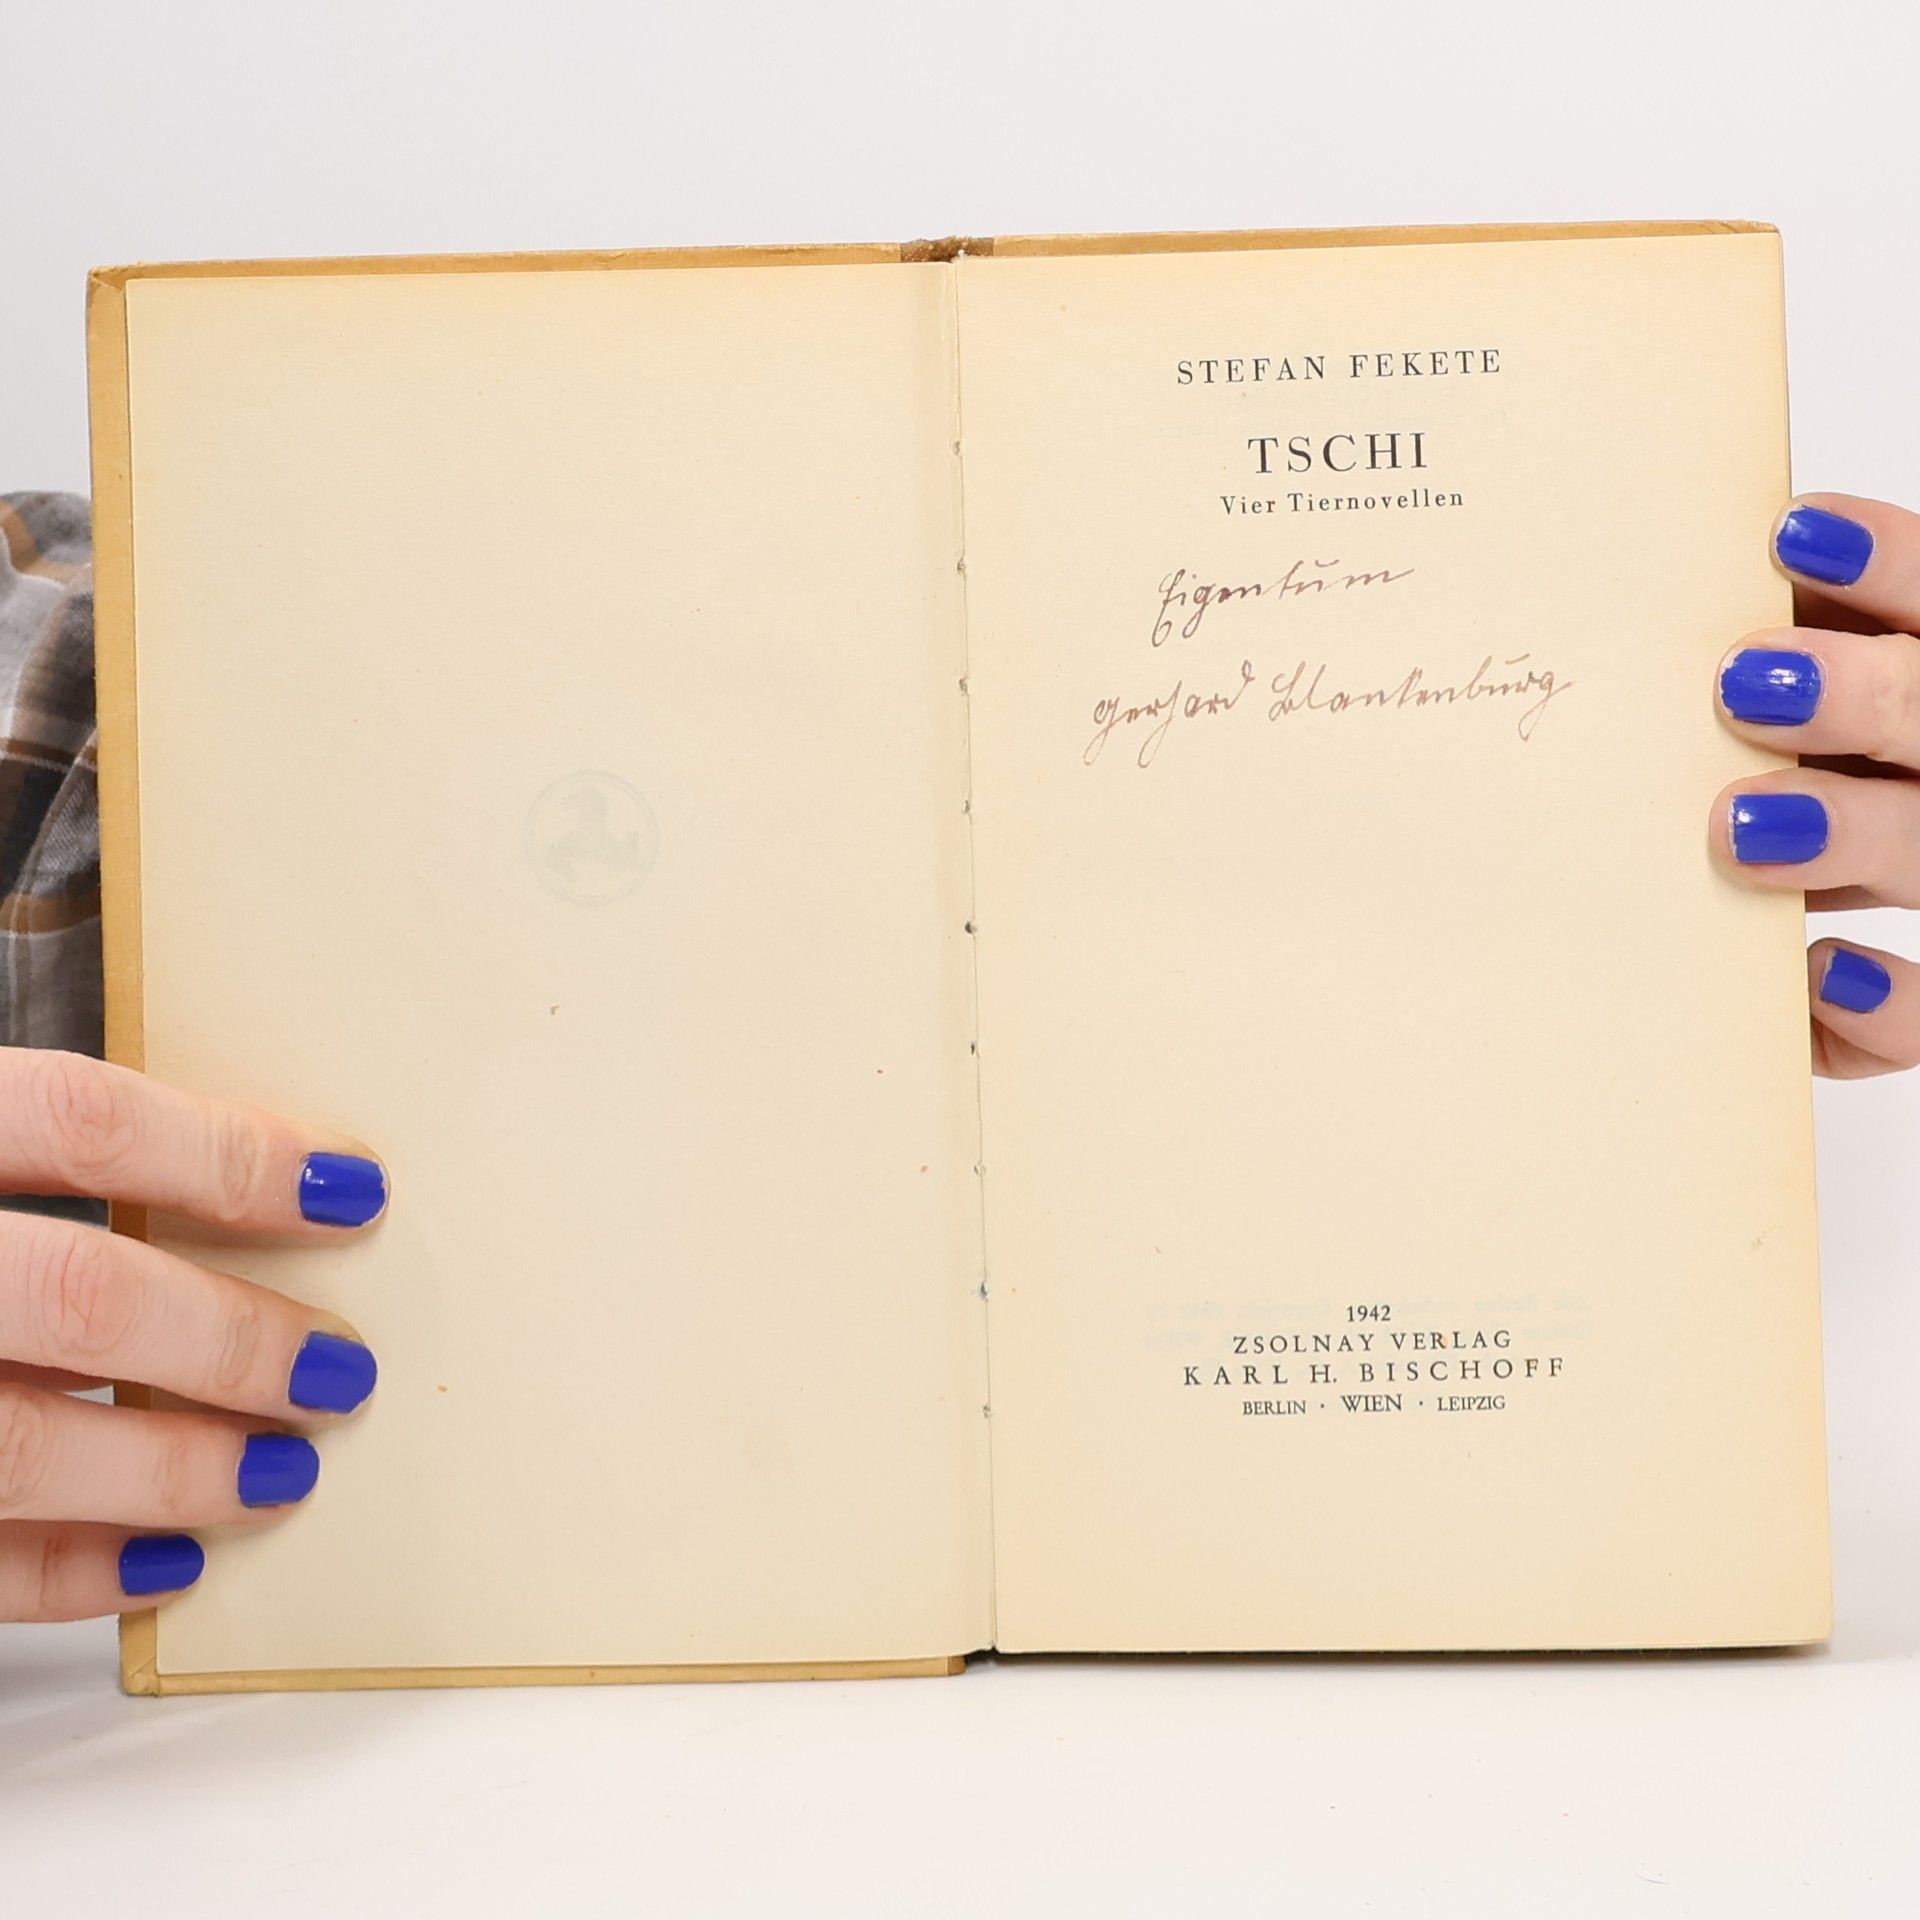 STEFAN FEKETE
TSCHI
Vier Tiernovellen
Eigentum
Gerhard Blankenburg
1942
ZSOLNAY VERLAG
KARL H. BISCHOFF
BERLIN · WIEN · LEIPZIG